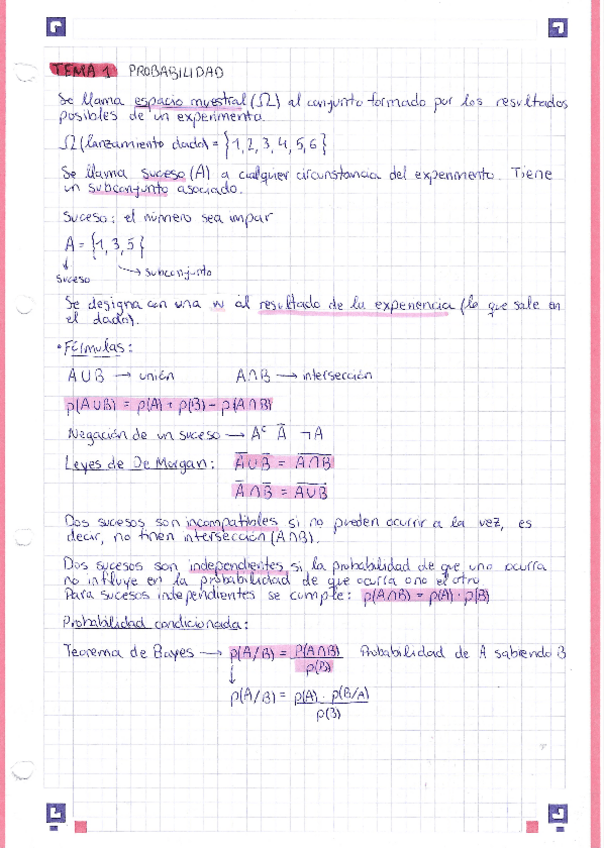 TEMA 1 PROBABILIDAD
Se llama espacio muestral (Ω) al conjunto formado por los resultados
posibles de un experimento.
Ω (lanzamiento dado) = {1, 2, 3, 4, 5, 6}
Se llama suceso (A) a cualquier circunstancia del experimento. Tiene
un subconjunto asociado.
Suceso: el número sea impar
A = {1, 3, 5}
↓
suceso ⇢ subconjunto
Se designa con una w al resultado de la experiencia (lo que sale en
el dado).
• Fórmulas:
A∪B → unión A∩B → intersección
p(A∪B) = p(A) + p(B) - p(A∩B)
Negación de un suceso → Aᶜ A̅ ¬A
Leyes de De Morgan: A̅ ∪ B̅ = A̅∩̅B̅
A̅ ∩ B̅ = A̅∪̅B̅
Dos sucesos son incompatibles si no pueden ocurrir a la vez, es
decir, no tinen intersección (A∩B).
Dos sucesos son independientes si la probabilidad de que uno ocurra
no influye en la probabilidad de que ocurra o no el otro
Para sucesos independientes se cumple: p(A∩B) = p(A) · p(B)
Probabilidad condicionada:
Teorema de Bayes → p(A/B) = P(A∩B) / p(B) Probabilidad de A sabiendo B
↓
p(A/B) = p(A) · p(B/A) / p(B)